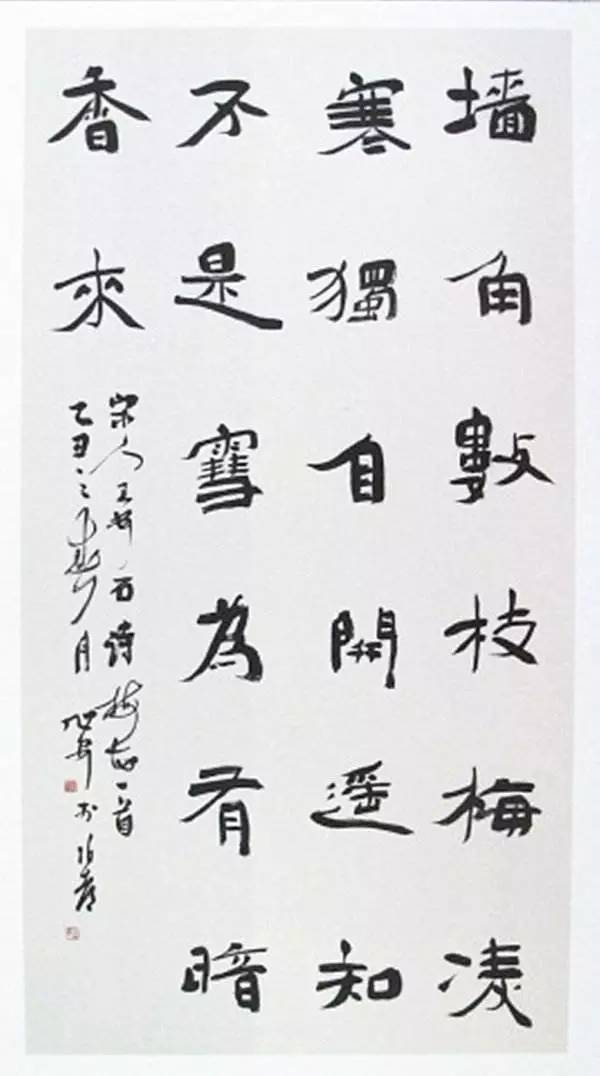 墙角數枝梅凌
寒獨自開遥知
不是雪為有暗
香來
宋人王安石诗梅花一首
乙丑之春月